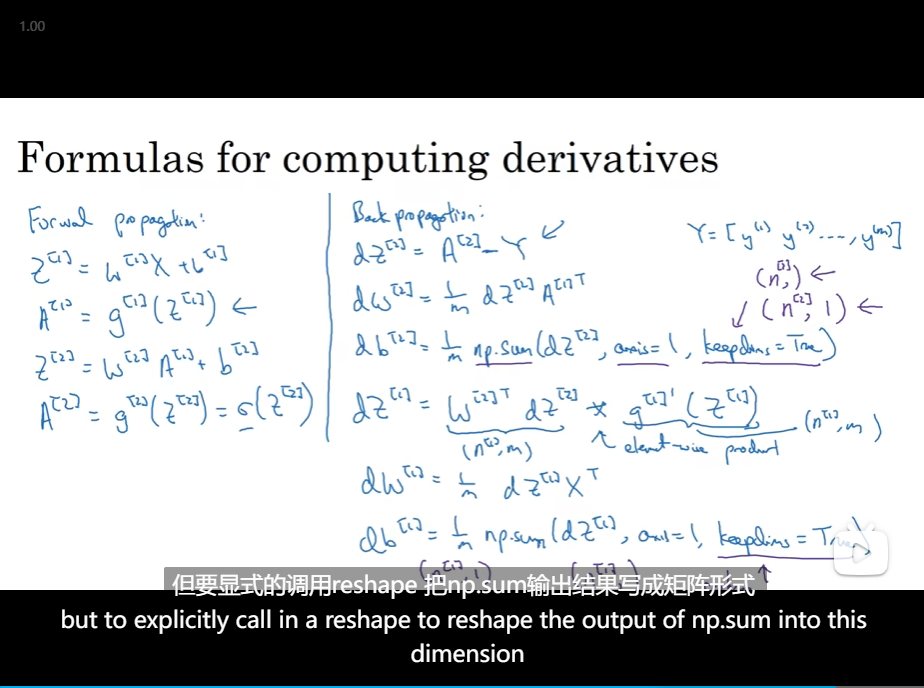 1.00
Formulas for computing derivatives
Forward propagation:
Z^[1] = W^[1]X + b^[1]
A^[1] = g^[1](Z^[1]) ←
Z^[2] = W^[2]A^[1] + b^[2]
A^[2] = g^[2](Z^[2]) = σ(Z^[2])
Back propagation:
dZ^[2] = A^[2] - Y
Y = [y^(1) y^(2) ..., y^(m)]
dW^[2] = 1/m dZ^[2] A^[1]T
(n^[2],) ←
(n^[2], 1) ←
db^[2] = 1/m np.sum(dZ^[2], axis=1, keepdims=True)
dZ^[1] = W^[2]T dZ^[2] * g^[1]'(Z^[1])
(n^[1], m)
element-wise product
(n^[1], m)
dW^[1] = 1/m dZ^[1] X^T
db^[1] = 1/m np.sum(dZ^[1], axis=1, keepdims=True)
但要显式的调用reshape 把np.sum输出结果写成矩阵形式
but to explicitly call in a reshape to reshape the output of np.sum into this
dimension